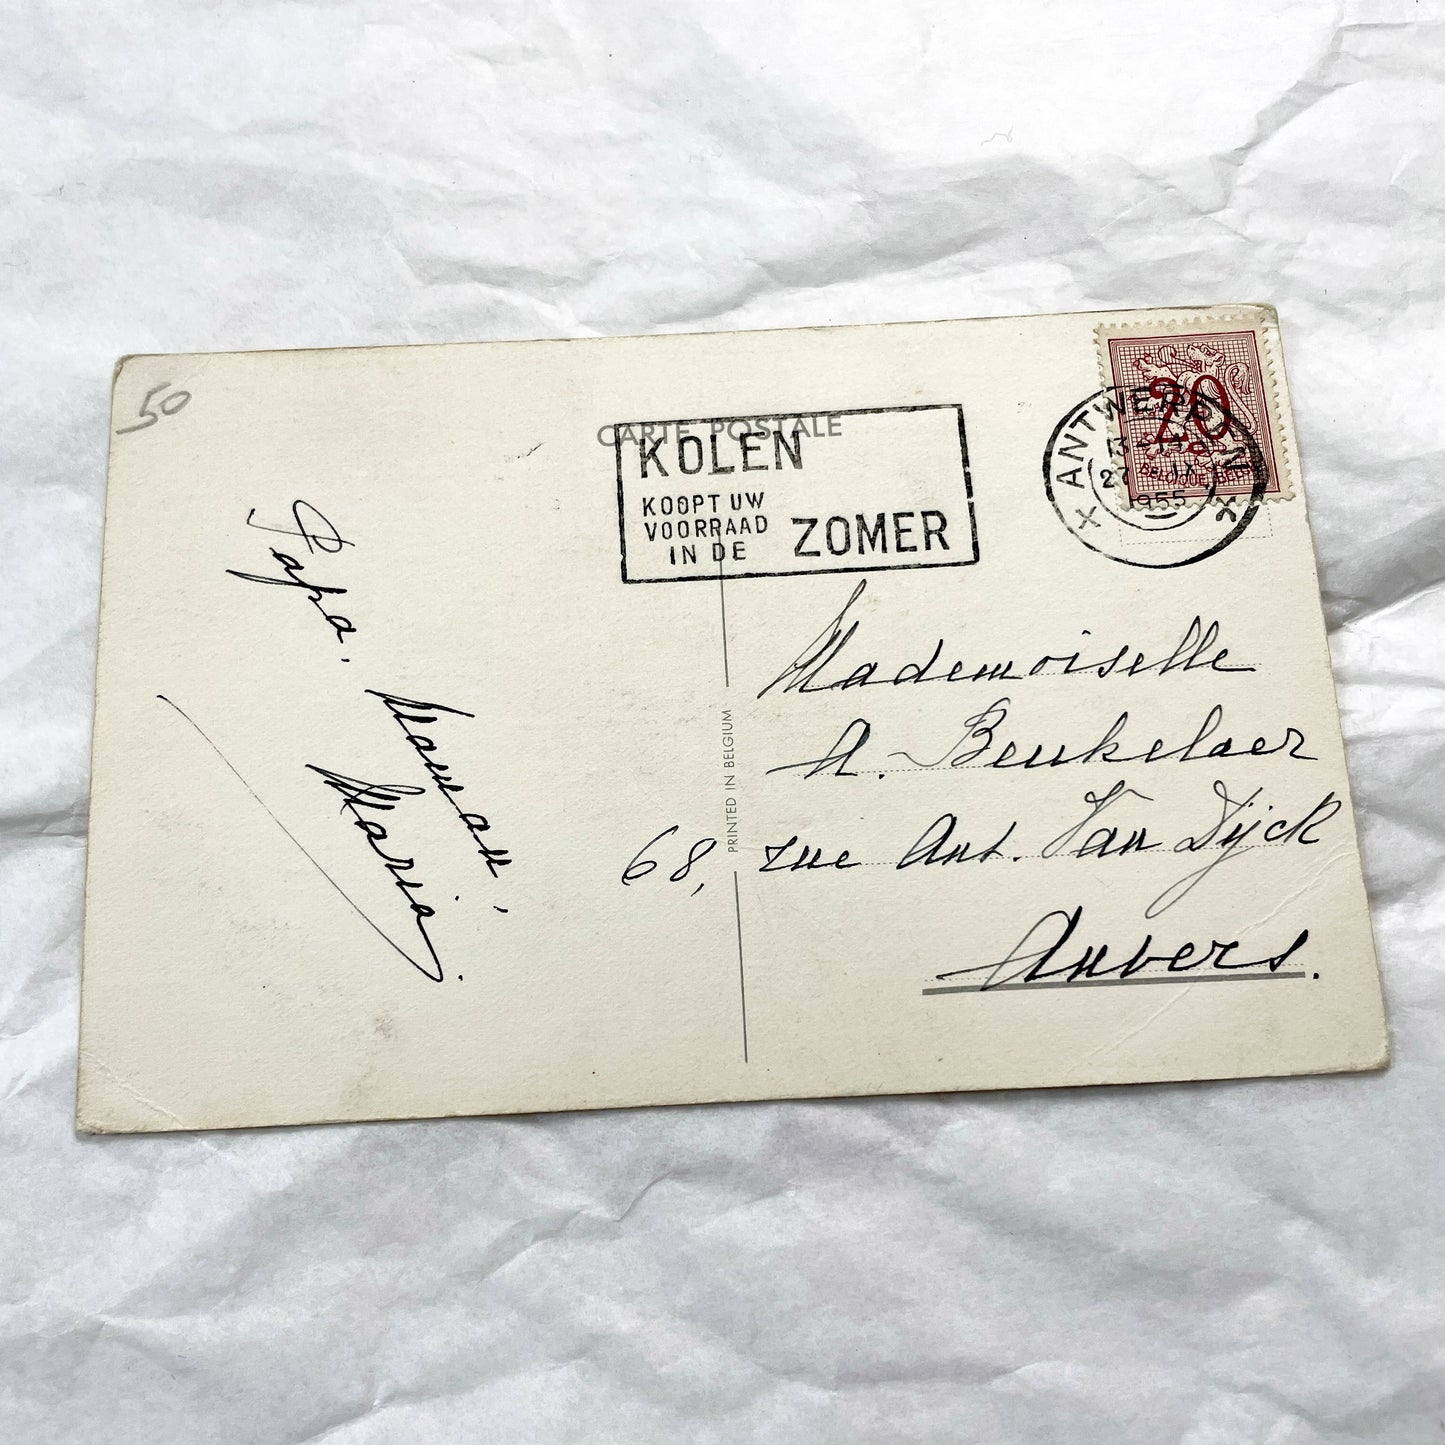 50
CARTE POSTALE
KOLEN
KOOPT UW
VOORRAAD
IN DE
ZOMER
ANTWERPEN
1955
20
BELGIQUE
Papa.
Maman,
Maria.
PRINTED IN BELGIUM
Mademoiselle
A. Beukelaer
68, rue Ant. Van Dijck
Anvers.